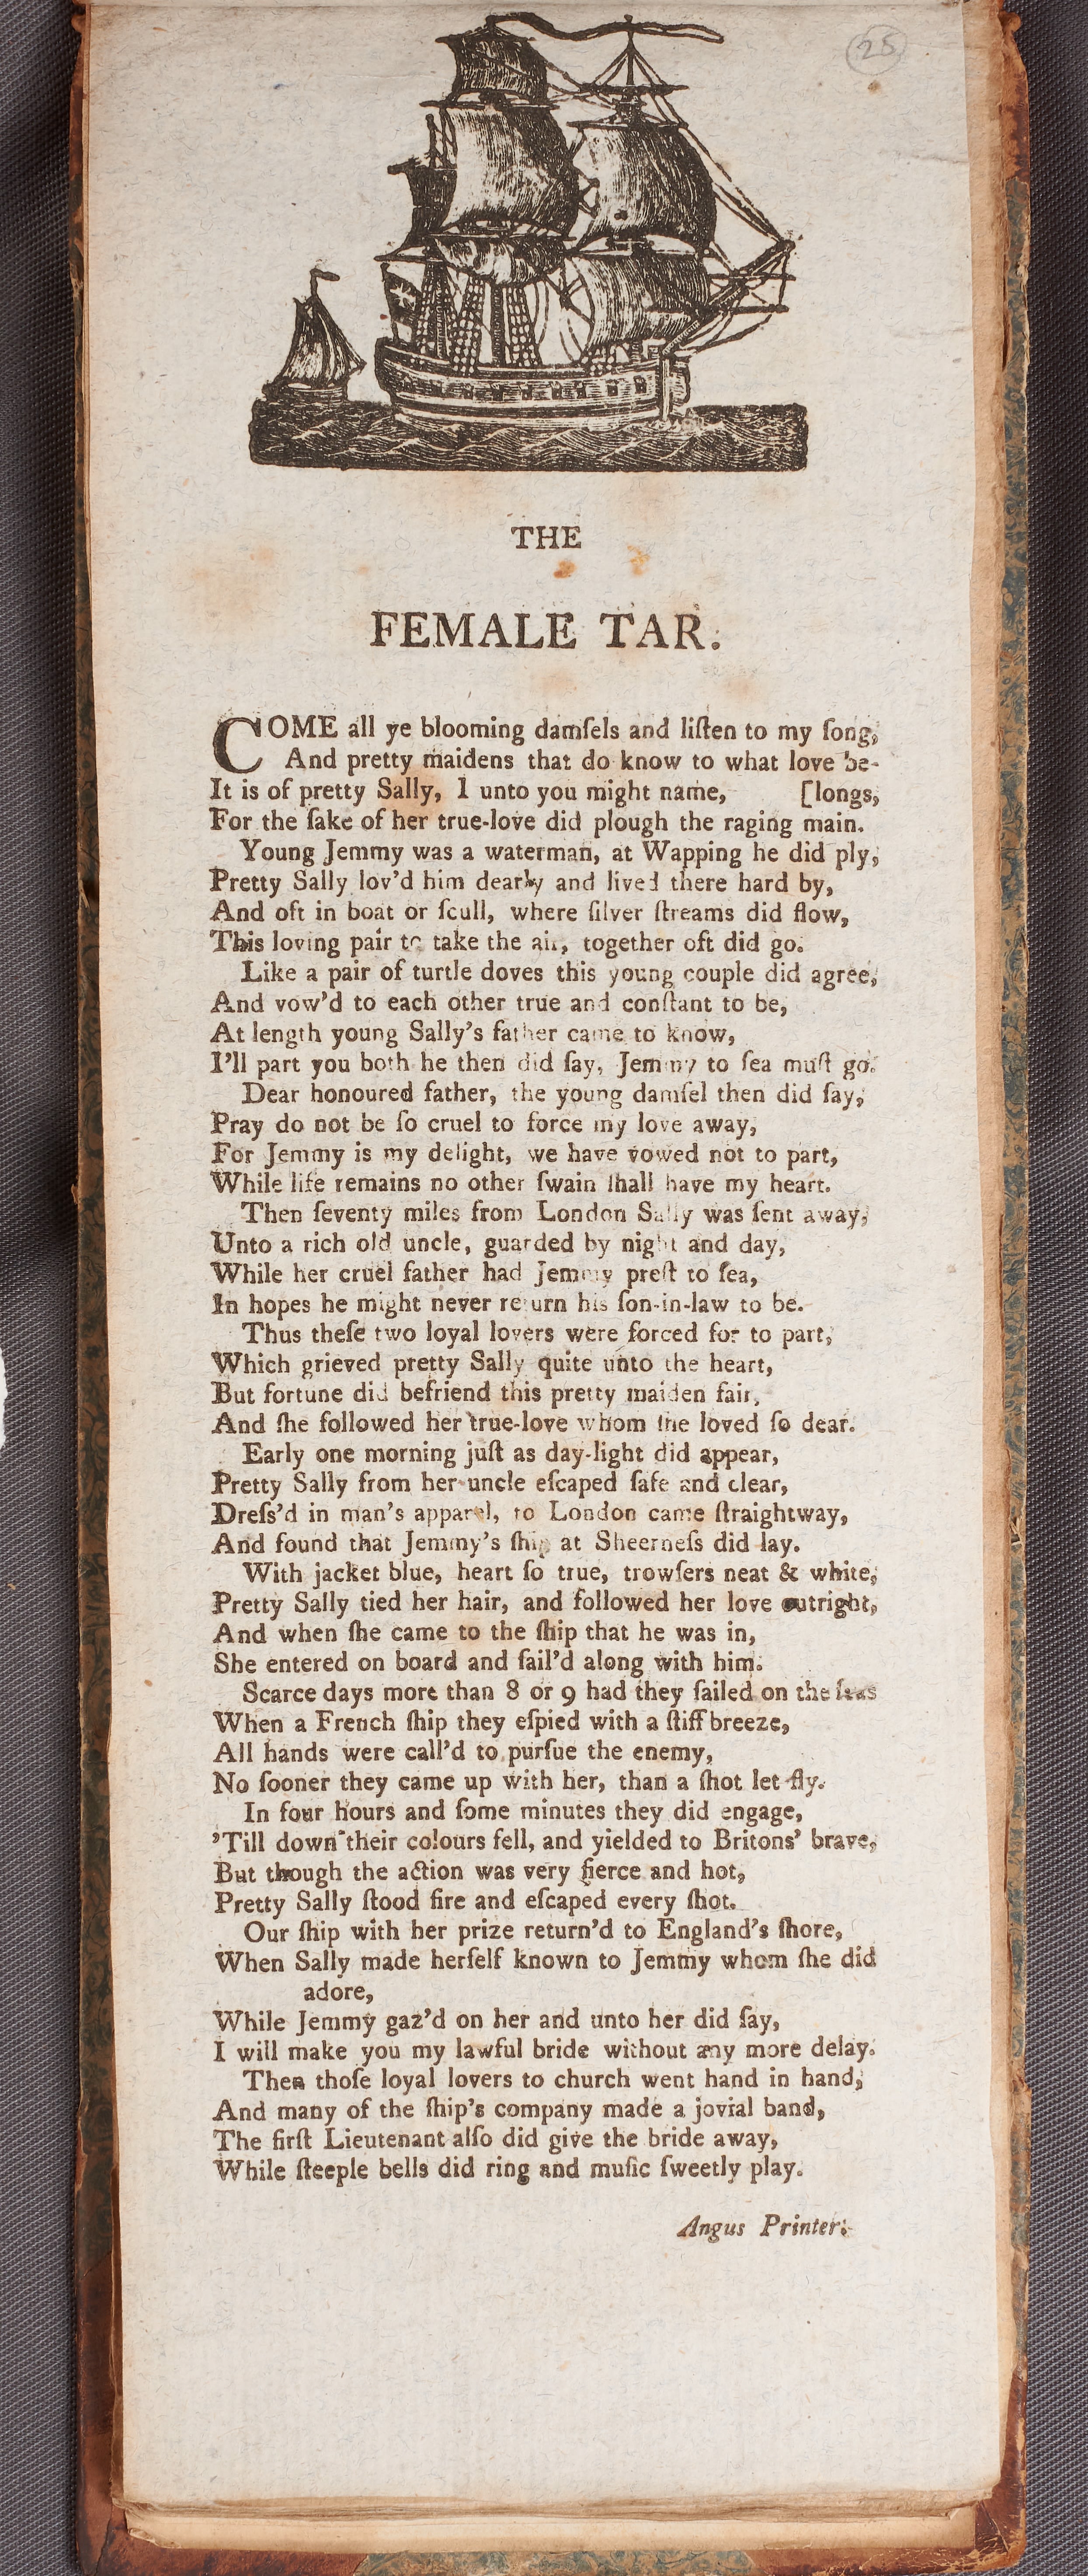 25
THE
FEMALE TAR.
COME all ye blooming damſels and liſten to my ſong,
And pretty maidens that do know to what love be-
It is of pretty Sally, I unto you might name, [longs,
For the ſake of her true-love did plough the raging main.
Young Jemmy was a waterman, at Wapping he did ply,
Pretty Sally lov'd him dearly and lived there hard by,
And oft in boat or ſcull, where ſilver ſtreams did flow,
This loving pair to take the air, together oft did go.
Like a pair of turtle doves this young couple did agree,
And vow'd to each other true and conſtant to be,
At length young Sally's father came to know,
I'll part you both he then did ſay, Jemmy to ſea muſt go.
Dear honoured father, the young damſel then did ſay,
Pray do not be ſo cruel to force my love away,
For Jemmy is my delight, we have vowed not to part,
While life remains no other ſwain ſhall have my heart.
Then ſeventy miles from London Sally was ſent away,
Unto a rich old uncle, guarded by night and day,
While her cruel father had Jemmy preſt to ſea,
In hopes he might never return his ſon-in-law to be.
Thus theſe two loyal lovers were forced for to part,
Which grieved pretty Sally quite unto the heart,
But fortune did befriend this pretty maiden fair,
And ſhe followed her true-love whom ſhe loved ſo dear.
Early one morning juſt as day-light did appear,
Pretty Sally from her uncle eſcaped ſafe and clear,
Dreſs'd in man's apparel, to London came ſtraightway,
And found that Jemmy's ſhip at Sheerneſs did lay.
With jacket blue, heart ſo true, trowſers neat & white,
Pretty Sally tied her hair, and followed her love outright,
And when ſhe came to the ſhip that he was in,
She entered on board and ſail'd along with him.
Scarce days more than 8 or 9 had they ſailed on the ſeas
When a French ſhip they eſpied with a ſtiff breeze,
All hands were call'd to purſue the enemy,
No ſooner they came up with her, than a ſhot let fly.
In four hours and ſome minutes they did engage,
'Till down their colours fell, and yielded to Britons' brave,
But though the action was very fierce and hot,
Pretty Sally ſtood fire and eſcaped every ſhot.
Our ſhip with her prize return'd to England's ſhore,
When Sally made herſelf known to Jemmy whom ſhe did
adore,
While Jemmy gaz'd on her and unto her did ſay,
I will make you my lawful bride without any more delay.
Then thoſe loyal lovers to church went hand in hand,
And many of the ſhip's company made a jovial band,
The firſt Lieutenant alſo did give the bride away,
While ſteeple bells did ring and muſic ſweetly play.
Angus Printer.